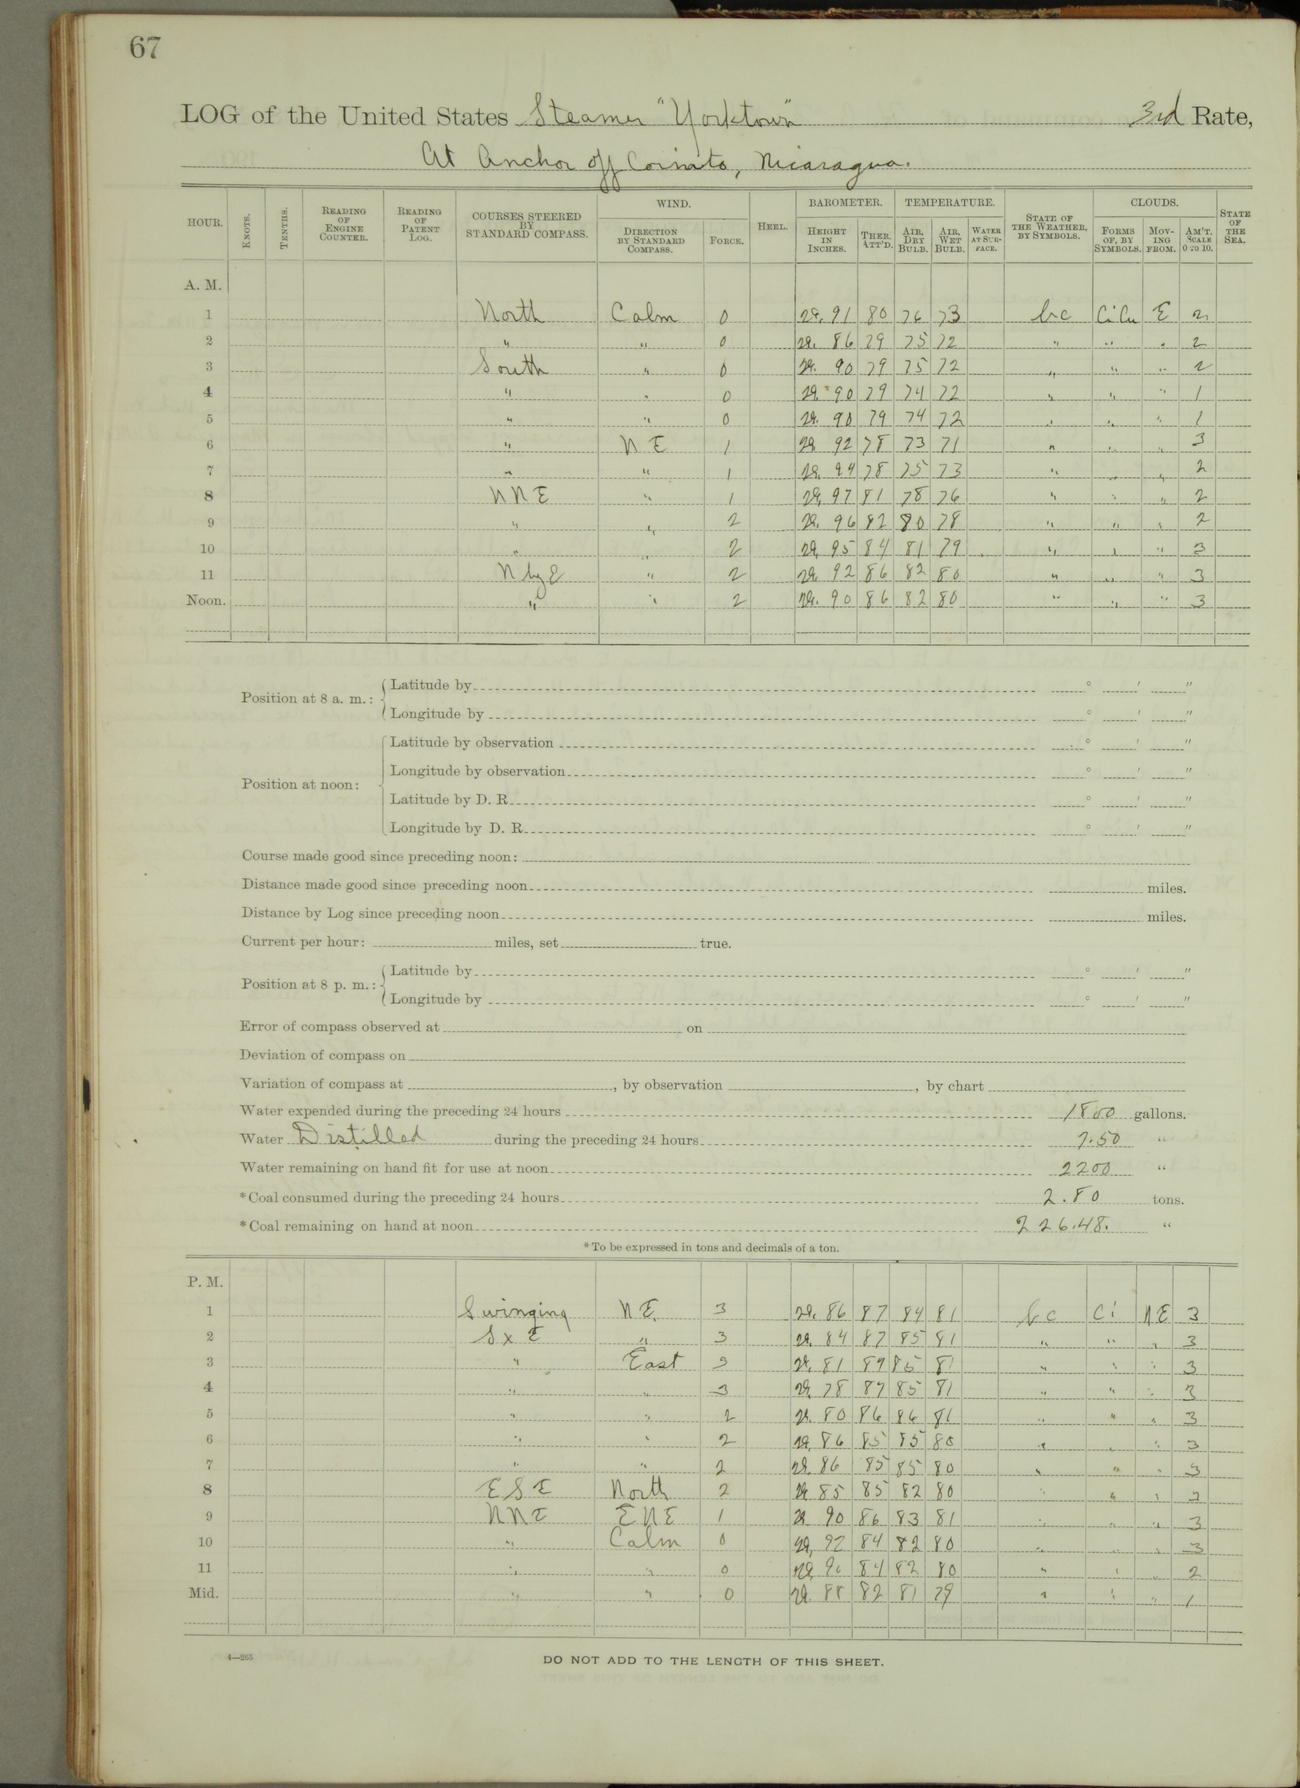 67
LOG of the United States Steamer "Yorktown" 3rd Rate,
At Anchor off Corinto, Nicaragua.
HOUR. KNOTS. TENTHS. READING OF ENGINE COUNTER. READING OF PATENT LOG. COURSES STEERED BY STANDARD COMPASS. WIND. DIRECTION BY STANDARD COMPASS. FORCE. HEEL. BAROMETER. HEIGHT IN INCHES. THER. ATT'D. TEMPERATURE. AIR, DRY BULB. AIR, WET BULB. WATER AT SURFACE. STATE OF THE WEATHER, BY SYMBOLS. CLOUDS. FORMS OF, BY SYMBOLS. MOVING FROM. AM'T. SCALE 0 TO 10. STATE OF THE SEA.
A. M.
1 North Calm 0 29.91 80 76 73 bc Ci Cu E 2
2 " " 0 29.86 79 75 72 " " " 2
3 South " 0 29.90 79 75 72 " " " 2
4 " " 0 29.90 79 74 72 " " " 1
5 " " 0 29.90 79 74 72 " " " 1
6 " NE 1 29.92 78 73 71 " " " 3
7 " " 1 29.94 78 75 73 " " " 2
8 NNE " 1 29.97 81 78 76 " " " 2
9 " " 2 29.96 82 80 78 " " " 2
10 " " 2 29.95 84 81 79 " " " 3
11 N by E " 2 29.92 86 82 80 " " " 3
Noon. " " 2 29.90 86 82 80 " " " 3
Position at 8 a. m.: Latitude by ° ' "
Longitude by ° ' "
Position at noon: Latitude by observation ° ' "
Longitude by observation ° ' "
Latitude by D. R. ° ' "
Longitude by D. R. ° ' "
Course made good since preceding noon:
Distance made good since preceding noon miles.
Distance by Log since preceding noon miles.
Current per hour: miles, set true.
Position at 8 p. m.: Latitude by ° ' "
Longitude by ° ' "
Error of compass observed at on
Deviation of compass on
Variation of compass at , by observation , by chart
Water expended during the preceding 24 hours 1800 gallons.
Water Distilled during the preceding 24 hours 750 "
Water remaining on hand fit for use at noon 2200 "
*Coal consumed during the preceding 24 hours 2.80 tons.
*Coal remaining on hand at noon 226.48. "
*To be expressed in tons and decimals of a ton.
P. M.
1 Swinging NE. 3 29.86 87 84 81 bc Ci NE 3
2 SxE " 3 29.84 87 85 81 " " " 3
3 " East 3 29.81 87 85 81 " " " 3
4 " " 3 29.78 87 85 81 " " " 3
5 " " 2 29.80 86 86 81 " " " 3
6 " " 2 29.86 85 85 80 " " " 3
7 " " 2 29.86 85 85 80 " " " 3
8 ESE North 2 29.85 85 82 80 " " " 2
9 NNE ENE 1 29.90 86 83 81 " " " 3
10 " Calm 0 29.92 84 82 80 " " " 3
11 " " 0 29.90 84 82 80 " " " 2
Mid. " " 0 29.88 82 81 79 " " " 1
4—265
DO NOT ADD TO THE LENGTH OF THIS SHEET.